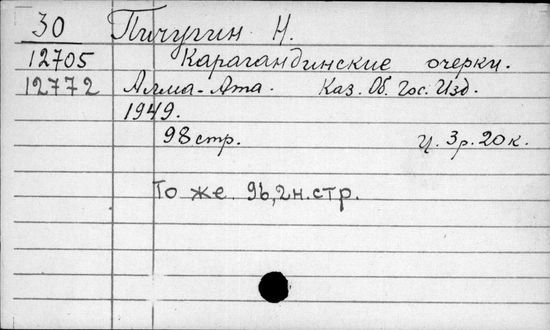 30 Пичугин Н.
12705 Карагандинские очерки.
12772 Алма-Ата. Каз. Об. Гос. Изд.
1949.
98 стр. Ц. 3р. 20к.
То же. 96,2н.стр.